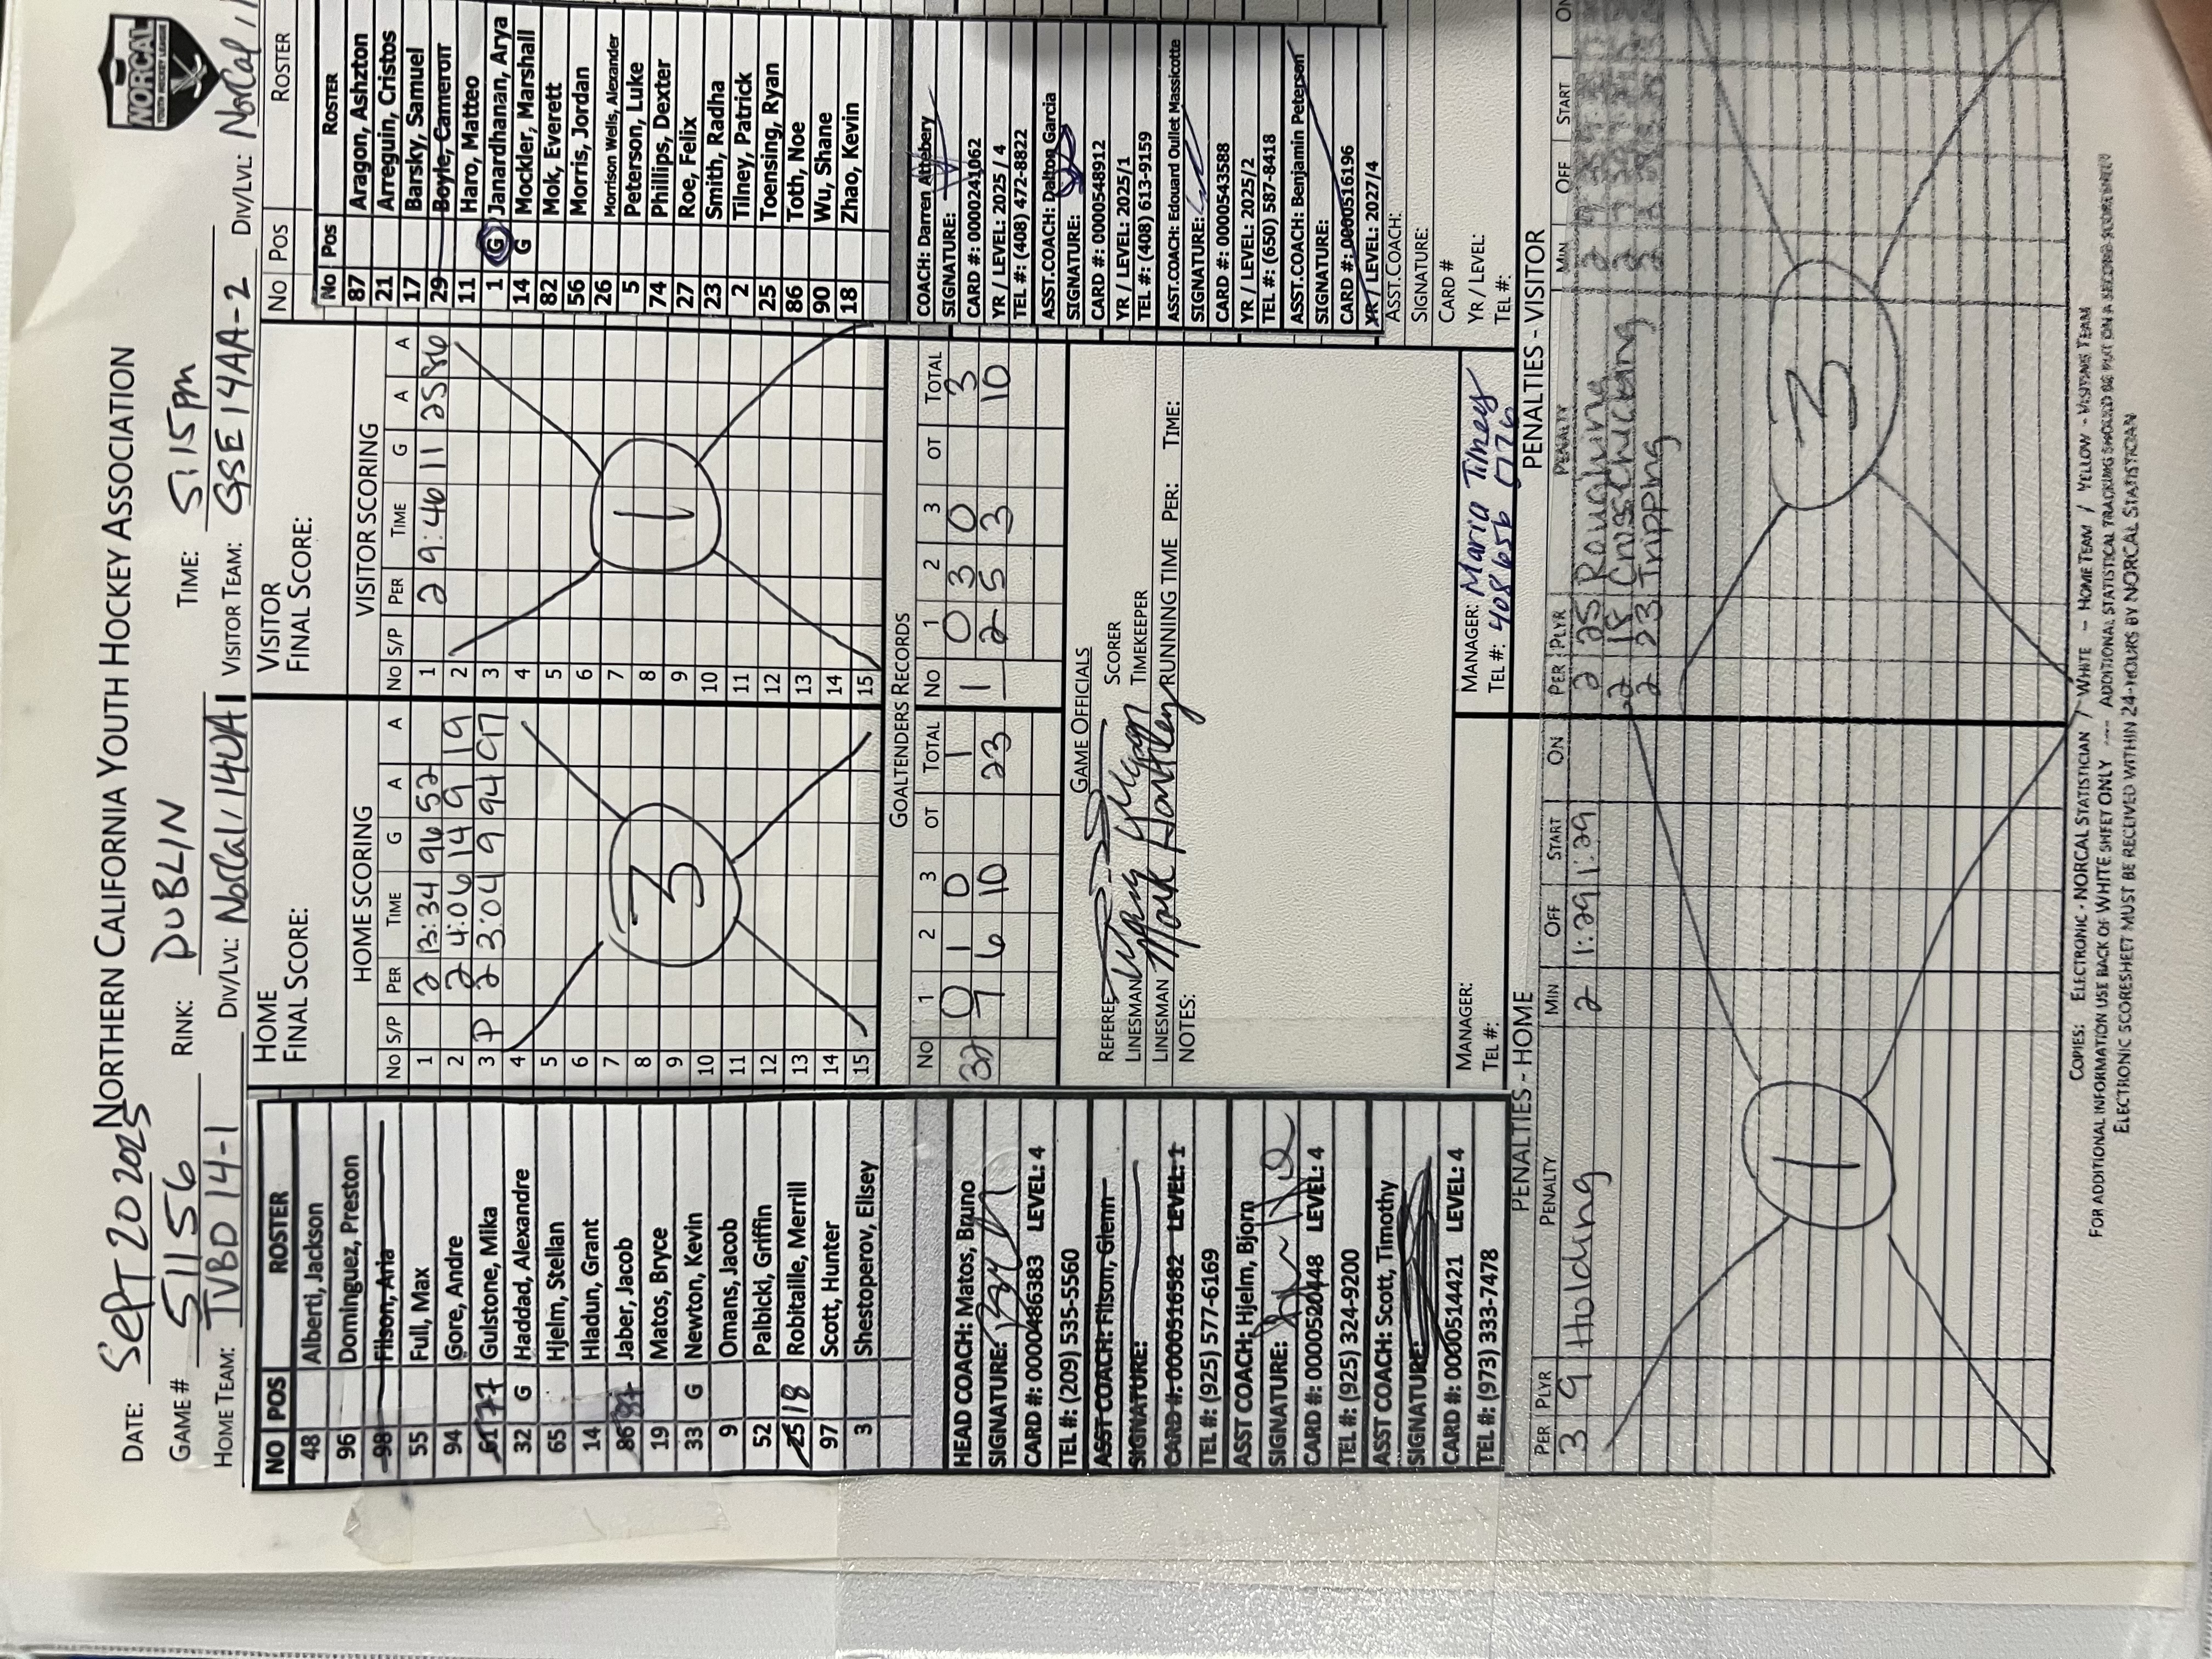 NORTHERN CALIFORNIA YOUTH HOCKEY ASSOCIATION
NORCAL
YOUTH HOCKEY LEAGUE
DATE: Sept 20 2025
GAME # 51156 RINK: DUBLIN TIME: 5:15pm
HOME TEAM: TVBD 14-1 DIV/LVL: NorCal/14UA1 VISITOR TEAM: GSE 14AA-2 DIV/LVL: NorCal/
NO POS ROSTER
48 Alberti, Jackson
96 Dominguez, Preston
98 Filson, Aria
55 Full, Max
94 Gore, Andre
61 77 Gulstone, Mika
32 G Haddad, Alexandre
65 Hjelm, Stellan
14 Hladun, Grant
86 87 Jaber, Jacob
19 Matos, Bryce
33 G Newton, Kevin
9 Omans, Jacob
52 Palbicki, Griffin
25 18 Robitaille, Merrill
97 Scott, Hunter
3 Shestoperov, Elisey
HEAD COACH: Matos, Bruno
SIGNATURE:
CARD #: 0000486383 LEVEL: 4
TEL #: (209) 535-5560
ASST COACH: Filson, Glenn
SIGNATURE:
CARD #: 0000516582 LEVEL: 1
TEL #: (925) 577-6169
ASST COACH: Hjelm, Bjorn
SIGNATURE:
CARD #: 0000520448 LEVEL: 4
TEL #: (925) 324-9200
ASST COACH: Scott, Timothy
SIGNATURE:
CARD #: 0000514421 LEVEL: 4
TEL #: (973) 333-7478
HOME
FINAL SCORE:
HOME SCORING
NO S/P PER TIME G A A
1 2 13:34 96 52
2 2 4:06 14 9 19
3 P 2 3:04 9 94 97
4
5
6
7
8
9
10
11
12
13
14
15
3
VISITOR
FINAL SCORE:
VISITOR SCORING
NO S/P PER TIME G A A
1 2 9:46 11 25 86
2
3
4
5
6
7
8
9
10
11
12
13
14
15
1
GOALTENDERS RECORDS
NO 1 2 3 OT TOTAL NO 1 2 3 OT TOTAL
32 0 1 0 1 1 0 3 0 3
7 6 10 23 2 5 3 10
GAME OFFICIALS
REFEREE SCORER
LINESMAN TIMEKEEPER
LINESMAN Mark Hantley RUNNING TIME PER: TIME:
NOTES:
MANAGER:
TEL #:
MANAGER: Maria Tilney
TEL #: 408 656 0776
NO POS ROSTER
No Pos ROSTER
87 Aragon, Ashzton
21 Arreguin, Cristos
17 Barsky, Samuel
29 Boyle, Cameron
11 Haro, Matteo
1 G Janardhanan, Arya
14 G Mockler, Marshall
82 Mok, Everett
56 Morris, Jordan
26 Morrison Wells, Alexander
5 Peterson, Luke
74 Phillips, Dexter
27 Roe, Felix
23 Smith, Radha
2 Tilney, Patrick
25 Toensing, Ryan
86 Toth, Noe
90 Wu, Shane
18 Zhao, Kevin
COACH: Darren Attebery
SIGNATURE:
CARD #: 0000241062
YR / LEVEL: 2025 / 4
TEL #: (408) 472-8822
ASST.COACH: Dalton Garcia
SIGNATURE:
CARD #: 0000548912
YR / LEVEL: 2025/1
TEL #: (408) 613-9159
ASST.COACH: Edouard Oullet Massicotte
SIGNATURE:
CARD #: 0000543588
YR / LEVEL: 2025/2
TEL #: (650) 587-8418
ASST.COACH: Benjamin Peterson
SIGNATURE:
CARD #: 0000516196
YR / LEVEL: 2027/4
ASST.COACH:
SIGNATURE:
CARD #
YR / LEVEL:
TEL #:
PENALTIES - HOME
PER PLYR PENALTY MIN OFF START ON
3 9 Holding 2 1:29 1:29
1
PENALTIES - VISITOR
PER PLYR PENALTY MIN OFF START ON
2 25 Roughing 2
2 18 Crosschecking 2
2 23 Tripping 2
3
COPIES: ELECTRONIC - NORCAL STATISTICIAN / WHITE - HOME TEAM / YELLOW - VISITING TEAM
FOR ADDITIONAL INFORMATION USE BACK OF WHITE SHEET ONLY ---- ADDITIONAL STATISTICAL TRACKING SHOULD BE PUT ON A SECOND SCORESHEET
ELECTRONIC SCORESHEET MUST BE RECEIVED WITHIN 24-HOURS BY NORCAL STATISTICIAN